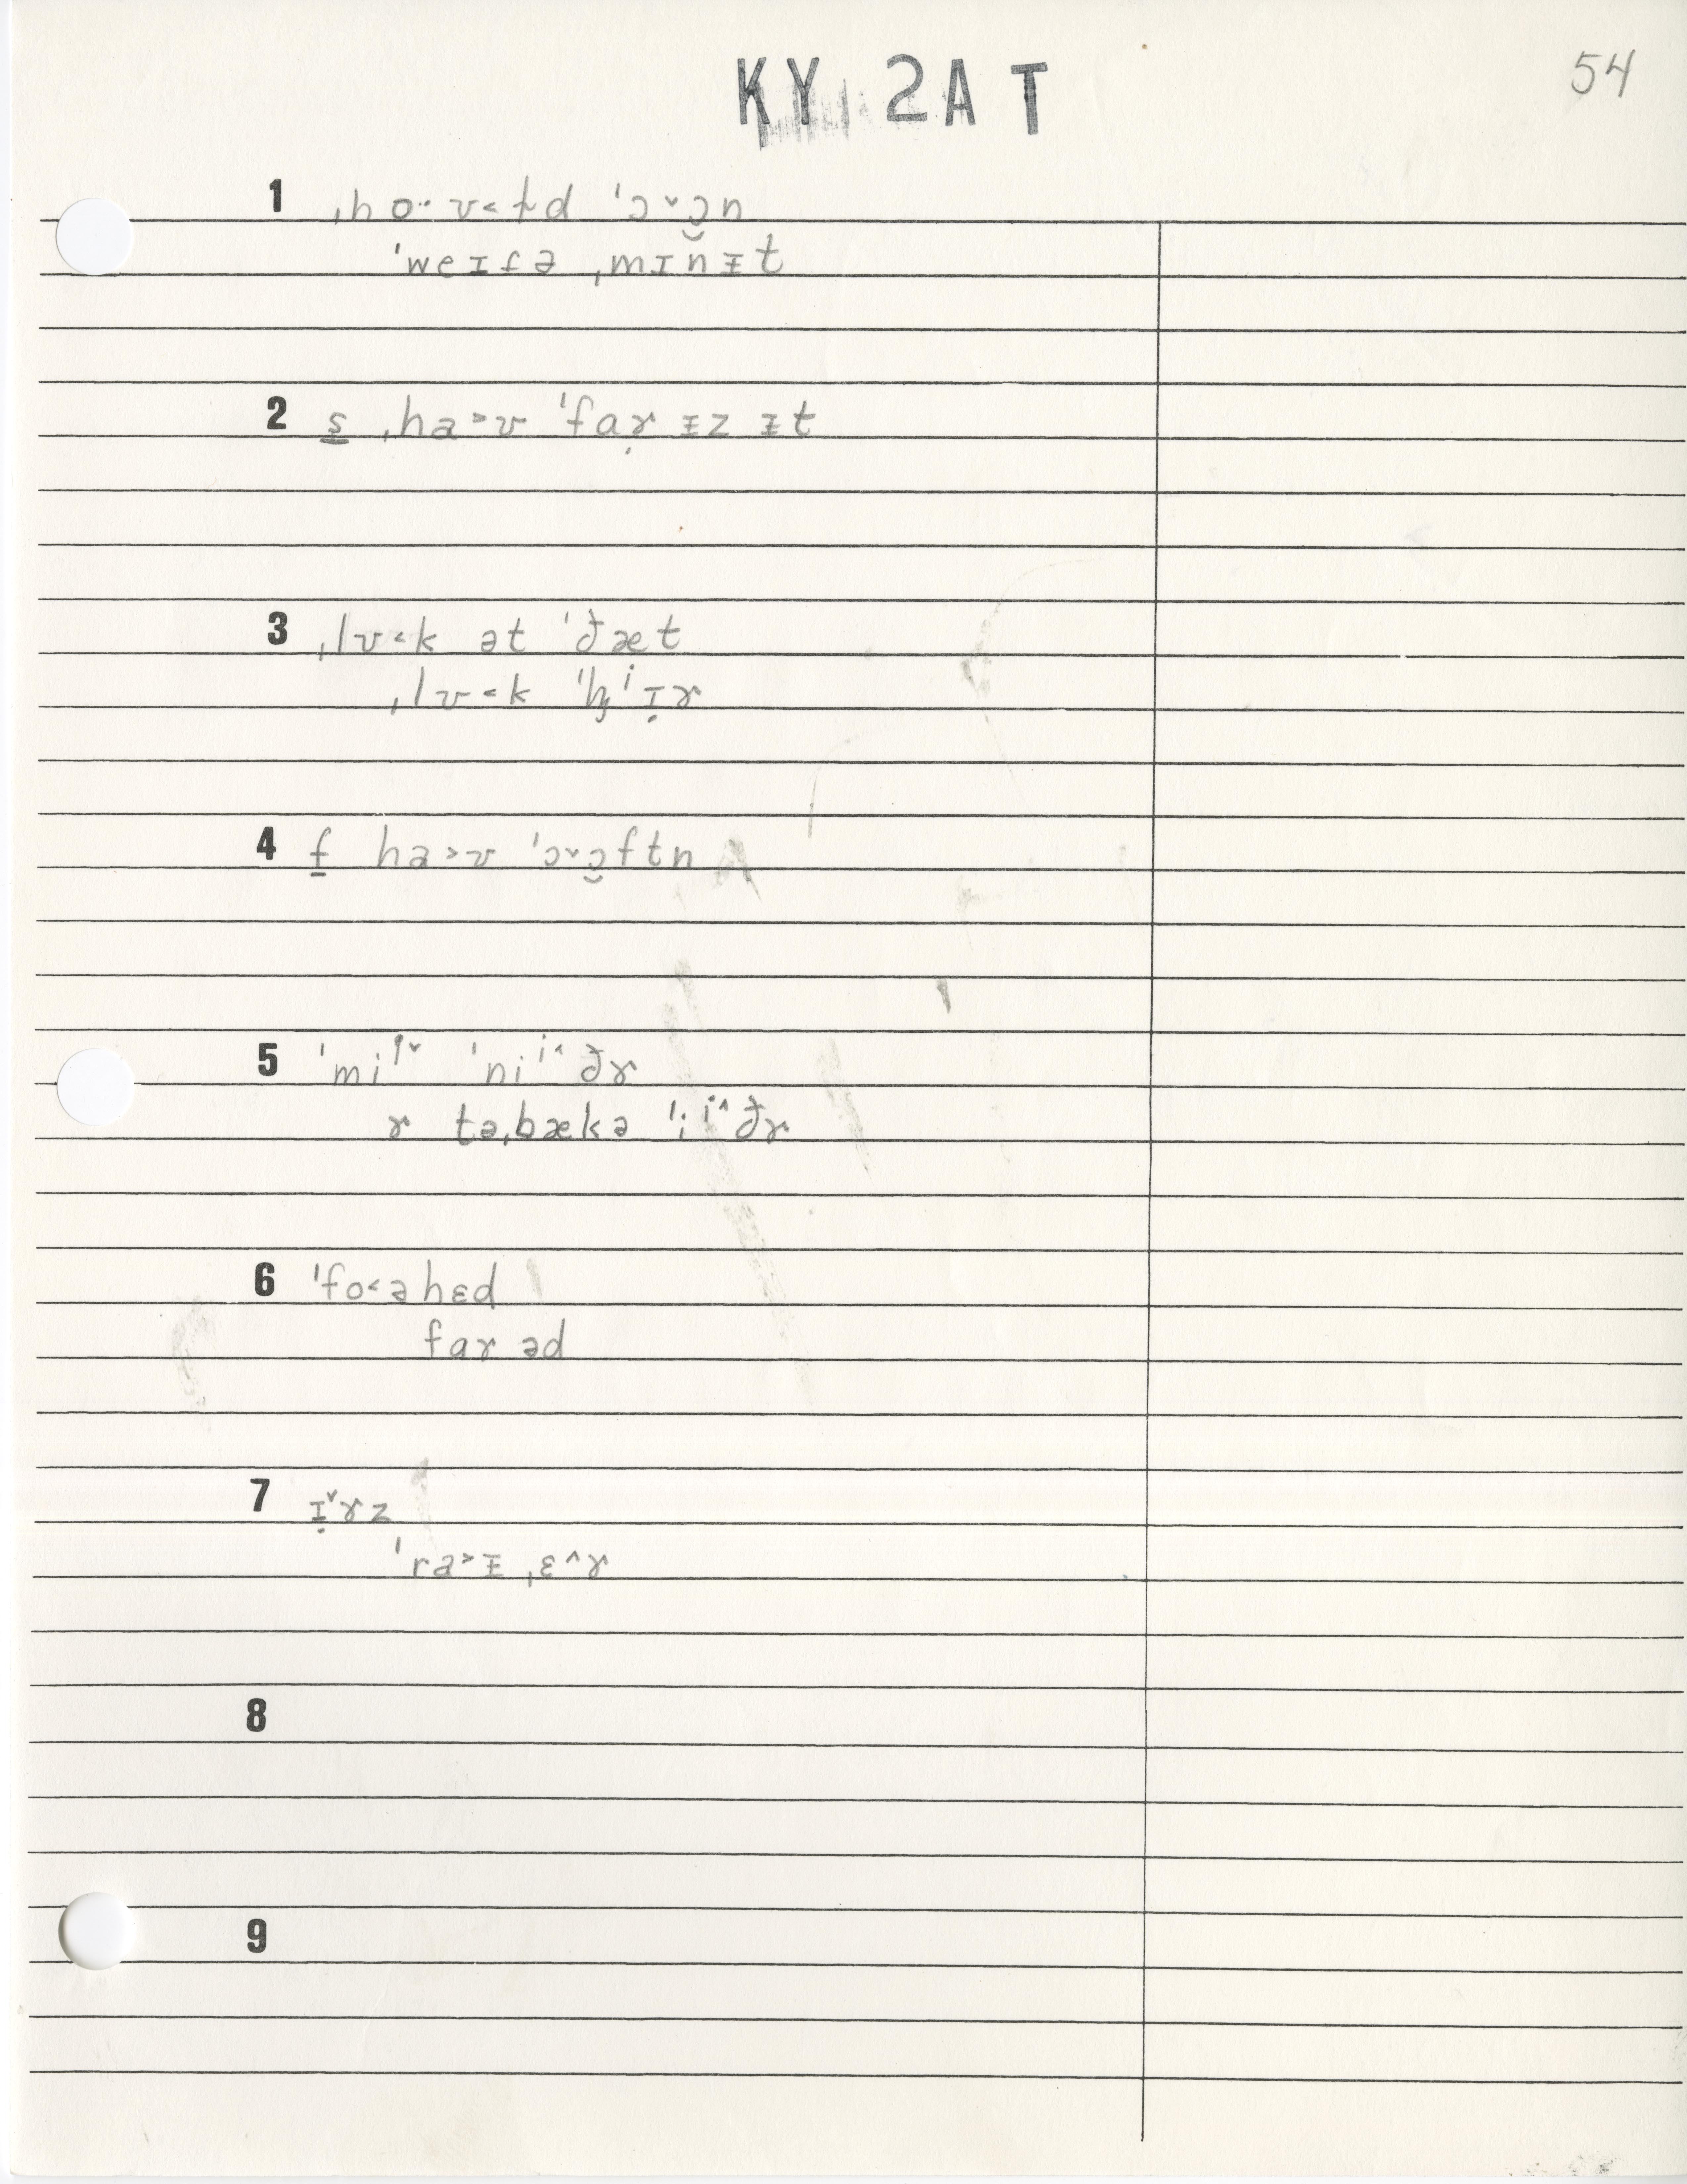 54
KY 2A T
1 ˌho··ʊ˂ɫd ˈɔ˅ɔ̮n
ˈweɪt̬ə ˌmɪnɪ̵t
2 s̲ ˌha˃ʊ ˈfɑɤ̣ ɪ̵z ɪ̵t
3 ˌlʊ˂k ət ˈðæt
ˌlʊ˂k ˈhⁱɪ̣ɤ
4 f̲ ha˃ʊ ˈɔ˅ɔ̮ftn
5 ˈmiⁱ˅ ˈniⁱ˄ðɤ
ɤ təˌbækə ˈiⁱ˄ðɤ
6 ˈfo˂əhɛd
fɑɤ əd
7 ɪ̣˅ɤz
ˈra˃ɪ̵ ˌɛ˄ɤ
8
9